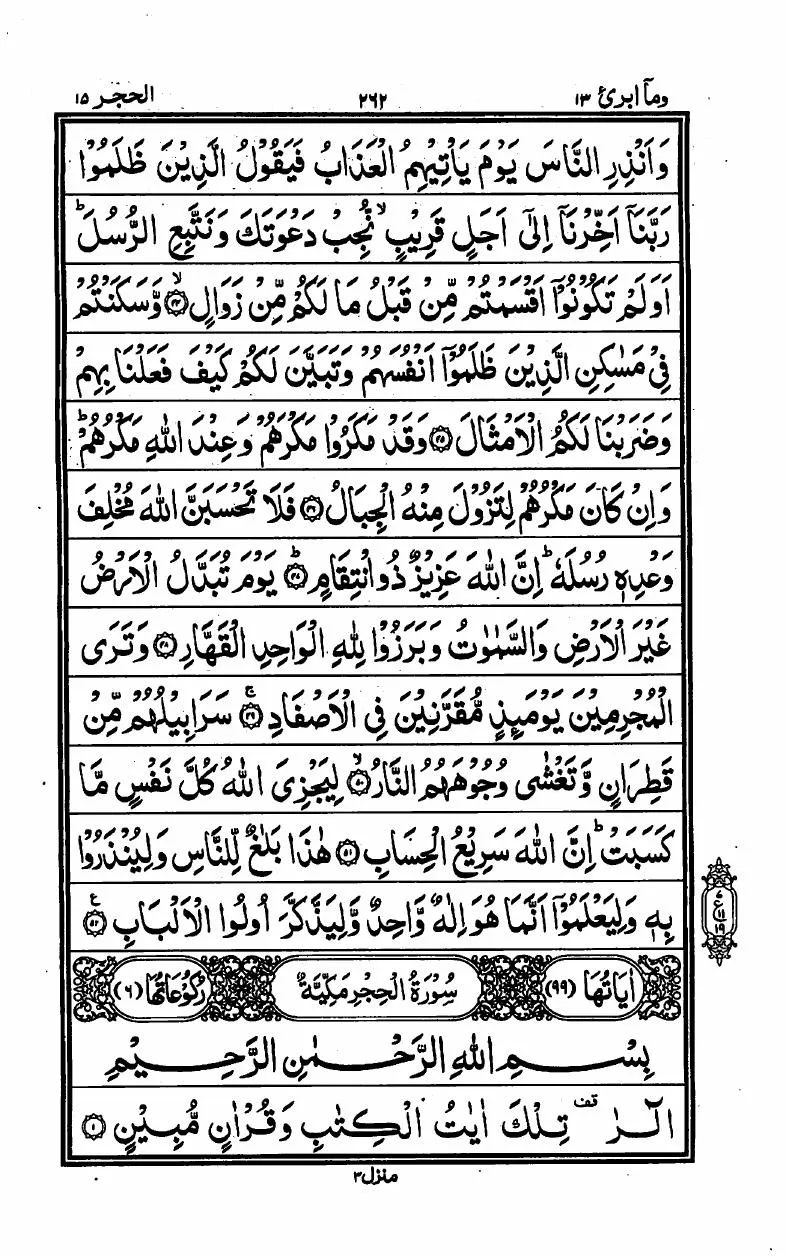 ومآ ابرئ ١٣
٢٦٢
الحجر ١٥
وَاَنْذِرِ النَّاسَ يَوْمَ يَاْتِيْهِمُ الْعَذَابُ فَيَقُوْلُ الَّذِيْنَ ظَلَمُوْا
رَبَّنَاۤ اَخِّرْنَاۤ اِلٰۤى اَجَلٍ قَرِيْبٍ ۙ نُّجِبْ دَعْوَتَكَ وَنَتَّبِعِ الرُّسُلَ ؕ
اَوَلَمْ تَكُوْنُوْۤا اَقْسَمْتُمْ مِّنْ قَبْلُ مَا لَكُمْ مِّنْ زَوَالٍ ۙ﴿۴۴﴾ وَّسَكَنْتُمْ
فِيْ مَسٰكِنِ الَّذِيْنَ ظَلَمُوْۤا اَنْفُسَهُمْ وَتَبَيَّنَ لَكُمْ كَيْفَ فَعَلْنَا بِهِمْ
وَضَرَبْنَا لَكُمُ الْاَمْثَالَ ﴿۴۵﴾ وَقَدْ مَكَرُوْا مَكْرَهُمْ وَعِنْدَ اللّٰهِ مَكْرُهُمْ ؕ
وَاِنْ كَانَ مَكْرُهُمْ لِتَزُوْلَ مِنْهُ الْجِبَالُ ﴿۴۶﴾ فَلَا تَحْسَبَنَّ اللّٰهَ مُخْلِفَ
وَعْدِهٖ رُسُلَهٗ ؕ اِنَّ اللّٰهَ عَزِيْزٌ ذُو انْتِقَامٍ ؕ﴿۴۷﴾ يَوْمَ تُبَدَّلُ الْاَرْضُ
غَيْرَ الْاَرْضِ وَالسَّمٰوٰتُ وَبَرَزُوْا لِلّٰهِ الْوَاحِدِ الْقَهَّارِ ﴿۴۸﴾ وَتَرَى
الْمُجْرِمِيْنَ يَوْمَئِذٍ مُّقَرَّنِيْنَ فِي الْاَصْفَادِ ۚ﴿۴۹﴾ سَرَابِيْلُهُمْ مِّنْ
قَطِرَانٍ وَّتَغْشٰى وُجُوْهَهُمُ النَّارُ ۙ﴿۵۰﴾ لِيَجْزِيَ اللّٰهُ كُلَّ نَفْسٍ مَّا
كَسَبَتْ ؕ اِنَّ اللّٰهَ سَرِيْعُ الْحِسَابِ ﴿۵۱﴾ هٰذَا بَلٰغٌ لِّلنَّاسِ وَلِيُنْذَرُوْا
بِهٖ وَلِيَعْلَمُوْۤا اَنَّمَا هُوَ اِلٰهٌ وَّاحِدٌ وَّلِيَذَّكَّرَ اُولُوا الْاَلْبَابِ ﴿۵۲﴾ ع
٧
ع ١١
١٩
اٰيَاتُهَا (٩٩)
سُوْرَةُ الْحِجْرِ مَكِّيَّةٌ
رُكُوْعَاتُهَا (٦)
بِسْمِ اللّٰهِ الرَّحْمٰنِ الرَّحِيْمِ
الٓرٰ ۟ قف تِلْكَ اٰيٰتُ الْكِتٰبِ وَقُرْاٰنٍ مُّبِيْنٍ ﴿۱﴾
منزل ٣